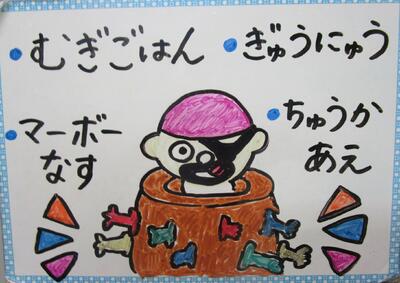 • むぎごはん
• ぎゅうにゅう
• マーボー
なす
• ちゅうか
あえ